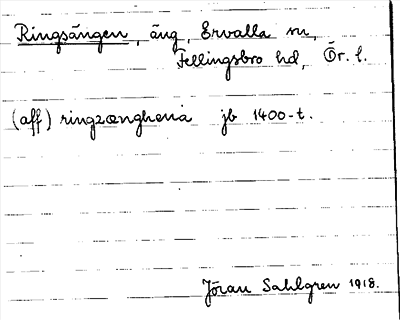 Ringsängen, äng, Ervalla sn,
Fellingsbro hd, Ör. l.
(aff) ringzænghena jb 1400-t.
Jöran Sahlgren 1918.